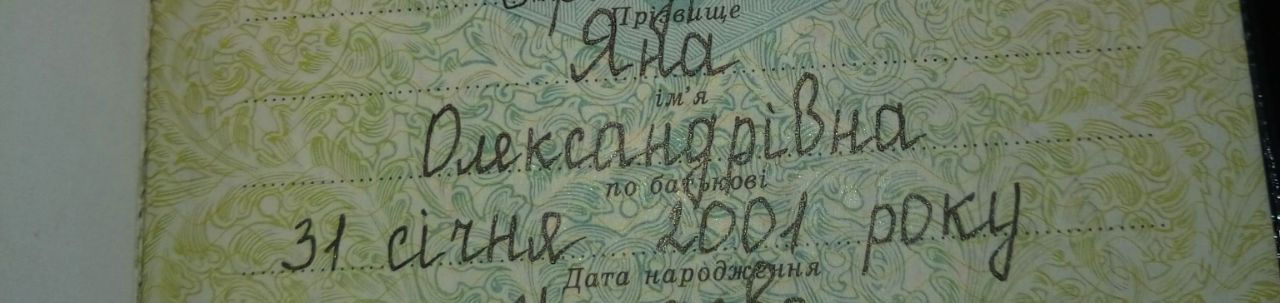 Прізвище
Яна
ім'я
Олександрівна
по батькові
31 січня 2001 року
Дата народження